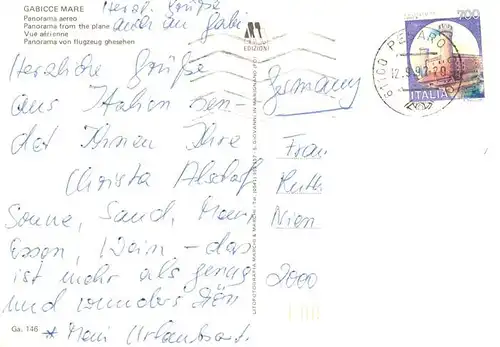 GABICCE MARE
Panorama aereo
Panorama from the plane
Vue aérienne
Panorama von flugzeug ghesehen
Herzl. Grüße
auch an Gabi
EDIZIONI
Herzliche Grüße
aus Italien sen-
det Ihnen Ihre
Christa
Sonne, Sand, Meer
Essen, Wein - das
ist mehr als genug
und wunderschön
* Mein Urlaubsort.
Ga. 146
LITOFOTOGRAFIA MARCHI & MARCHI - Tel. (0541)
S. GIOVANNI IN MARIGNANO (FO)
700
ITALIA
61100 PESARO
Germany
Frau
Ruth
2000